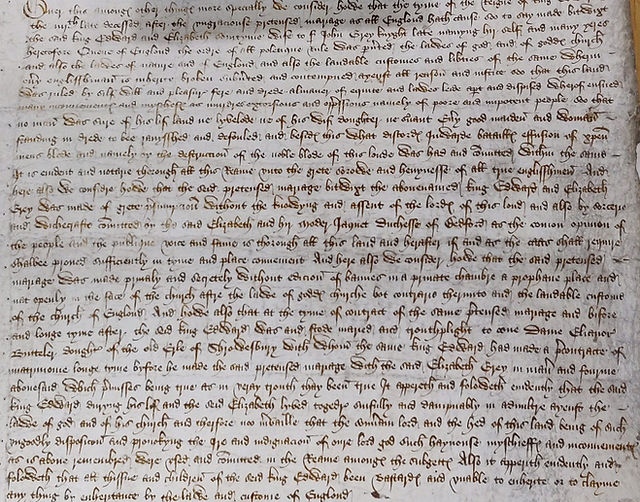 Over this amonges other thinges more specially we consider howe that the tyme of the Reigne of king
the iiijth late decessed after the ungracious pretensed mariage as all England hath cause soo to say made bitwixt
the said king Edward and Elizabeth somtyme wife to Sr John Grey knight late namyng hir self and many yeres
heretofore Quene of England the ordre of all politeque rule was pverted the lawes of god and of goddes church
and also the lawes of nature and of England and also the laudable customes and liberties of the same wherin
evry englisshman is inheritor broken subverted and contempned ayenst all reason and justice soo that this land
was ruled by self will and pleasur fere and drede almaner of equite and lawes leide apt and dispised wherof ensued
many inconvenients and myschiefs as murdres extorsions and oppssions namely of poore and impotent people soo that
no man was sure of his lif land ne lyvelode ne of his wif doughter ne svaunt evry good maiden and woman
standing in drede to be ravisshed and defouled and besides this what discords inwarde batailles effusion of xpen
mens blode and namely by the destruccon of the noble blode of this londe was had and comitted within the same
it is evident and notarie thorough all this Reame unto the grete sorowe and hevynesse of all true englisshmen And
here also we consider howe that the seid pretensed mariage bitwixt the abovenamed king Edward and Elizabeth
Grey was made of grete psumpcion without the knowyng and assent of the lordes of this lond and also by sorcerie
and wichecrafte comitted by the said Elizabeth and hir moder Jaquet duchesse of Bedford as the comon opinion of
the people and the publique voice and fame is thorough all this land and herafter if and as the caas shall require
shalbee proved sufficiently in tyme and place convenient And here also we consider howe that the said pretensed
mariage was made privaly and secretely without edicion of bannes in a private chambre a prophane place and
not openly in the face of the church aftre the lawe of goddes churche bot contrarie therunto and the laudable custome
of the church of England And howe also that at the tyme of contract of the same pretensed mariage and bifore
and longe tyme after the seid king Edward was and stode maried and trouthplight to oone Dame Elianor
Butteler doughter of the old Erle of Shrowesbury with whom the same king Edward had made a precontracte of
matrimonie longe tyme bifore he made the said pretensed mariage with the said Elizabeth Grey in manr and fourme
abovesaid which pmisses being true as in veray trouth thay been true It appereth and foloweth evidently that the said
king Edward duryng his lif and the seid Elizabeth lyved togedr sinfully and dampnably in adultrie ayenst the
lawe of god and of his church and therfore noo mvaille that the soverain lord and the hed of this land being of such
ungodly disposicion and provokyng the ire and indignacion of oure lord god such haynouse myschieffs and inconvenients
as is above remembred were used and comitted in the Reame amongs the subjects Also it appereth evidently and
foloweth that all thissue and children of the seid king Edward been bastards and unable to enherite or to clayme
any thing by enheritance by the lawe and custome of England